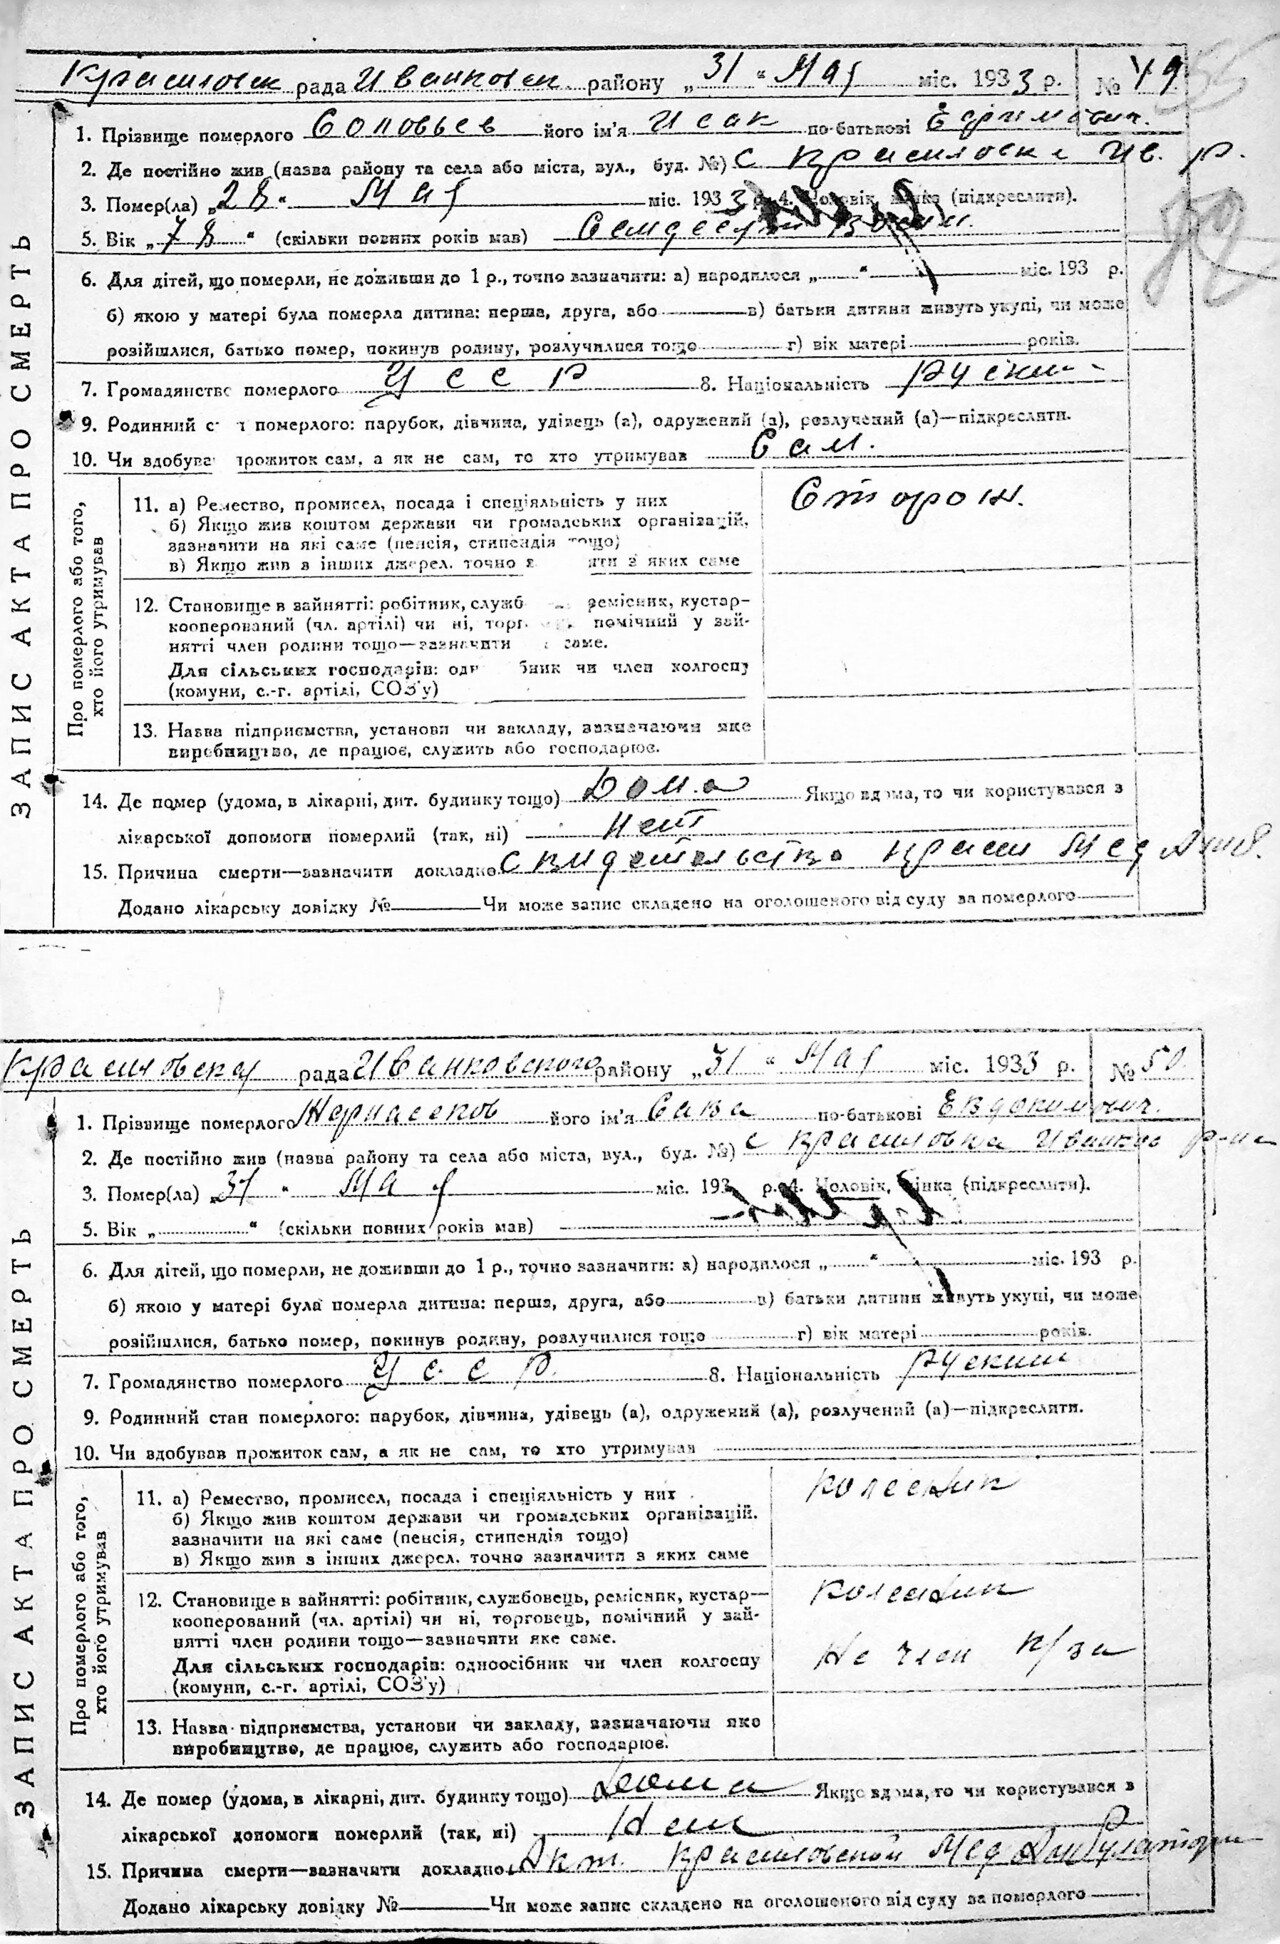 Красиловск рада Иванковск. району „31 “ Мая міс. 1933 р. № 49
1. Прізвище померлого Соловьев його ім'я Исак по-батькові Ефимович.
2. Де постійно жив (назва району та села або міста, вул., буд. №) с Красиловка Ив. р.
3. Помер(ла) „28 “ Мая міс. 1933 р. 4. Чоловік, жінка (підкреслити).
5. Вік „78 “ (скільки повних років мав) Семдесят восем.
6. Для дітей, що померли, не доживши до 1 р., точно зазначити: а) народилося „ “ міс. 193 р.
б) якою у матері була померла дитина: перша, друга, або в) батьки дитини живуть укупі, чи може
розійшлися, батько помер, покинув родину, розлучилися тощо г) вік матері років.
7. Громадянство померлого УССР 8. Національність руский
9. Родинний с т померлого: парубок, дівчина, удівець (а), одружений (а), розлучений (а)—підкреслити.
10. Чи здобува прожиток сам, а як не сам, то хто утримував Сам.
ЗАПИС АКТА ПРО СМЕРТЬ
Про померлого або того,
хто його утримував
11. а) Ремество, промисел, посада і спеціяльність у них
б) Якщо жив коштом держави чи громадських організацій,
зазначити на які саме (пенсія, стипендія тощо)
в) Якщо жив з інших джерел, точно з яких саме
Сторож.
12. Становище в зайнятті: робітник, служб ремісник, кустар-
кооперований (чл. артілі) чи ні, торг помічний у зай-
нятті член родини тощо—зазначити саме.
Для сільських господарів: од бник чи член колгоспу
(комуни, с.-г. артілі, СОЗ'у)
13. Назва підприємства, установи чи закладу, зазначаючи яке
виробництво, де працює, служить або господарює.
14. Де помер (удома, в лікарні, дит. будинку тощо) Дома Якщо вдома, то чи користувався з
лікарської допомоги померлий (так, ні) Нет
15. Причина смерти—зазначити докладно Свидетельство Красил Мед Амб.
Додано лікарську довідку № Чи може запис складено на оголошеного від суду за померлого
Красиловская рада Иванковского району „31 “ Мая міс. 1933 р. № 50
1. Прізвище померлого його ім'я Сава по-батькові Евдокимович.
2. Де постійно жив (назва району та села або міста, вул., буд. №) с Красиловка Иванков р-на
3. Помер(ла) „31 “ Мая міс. 193 р. 4. Чоловік, жінка (підкреслити).
5. Вік „ “ (скільки повних років мав)
6. Для дітей, що померли, не доживши до 1 р., точно зазначити: а) народилося „ “ міс. 193 р.
б) якою у матері була померла дитина: перша, друга, або в) батьки дитини живуть укупі, чи може
розійшлися, батько помер, покинув родину, розлучилися тощо г) вік матері років.
7. Громадянство померлого У С. С Р. 8. Національність руский
9. Родинний стан померлого: парубок, дівчина, удівець (а), одружений (а), розлучений (а)—підкреслити.
10. Чи здобував прожиток сам, а як не сам, то хто утримував
ЗАПИС АКТА ПРО СМЕРТЬ
Про померлого або того,
хто його утримував
11. а) Ремество, промисел, посада і спеціяльність у них
б) Якщо жив коштом держави чи громадських організацій,
зазначити на які саме (пенсія, стипендія тощо)
в) Якщо жив з інших джерел, точно зазначити з яких саме
колесник
12. Становище в зайнятті: робітник, службовець, ремісник, кустар—
кооперований (чл. артілі) чи ні, торговець, помічний у зай-
нятті член родини тощо—зазначити яке саме.
Для сільських господарів: одноосібник чи член колгоспу
(комуни, с.-г. артілі, СОЗ'у)
колесник
Не член к/за
13. Назва підприємства, установи чи закладу, зазначаючи яке
виробництво, де працює, служить або господарює.
14. Де помер (удома, в лікарні, дит. будинку тощо) Дома Якщо вдома, то чи користувався з
лікарської допомоги померлий (так, ні) Нет
15. Причина смерти—зазначити докладно Акт. Красиловской Мед Амбулатории
Додано лікарську довідку № Чи може запис складено на оголошеного від суду за померлого